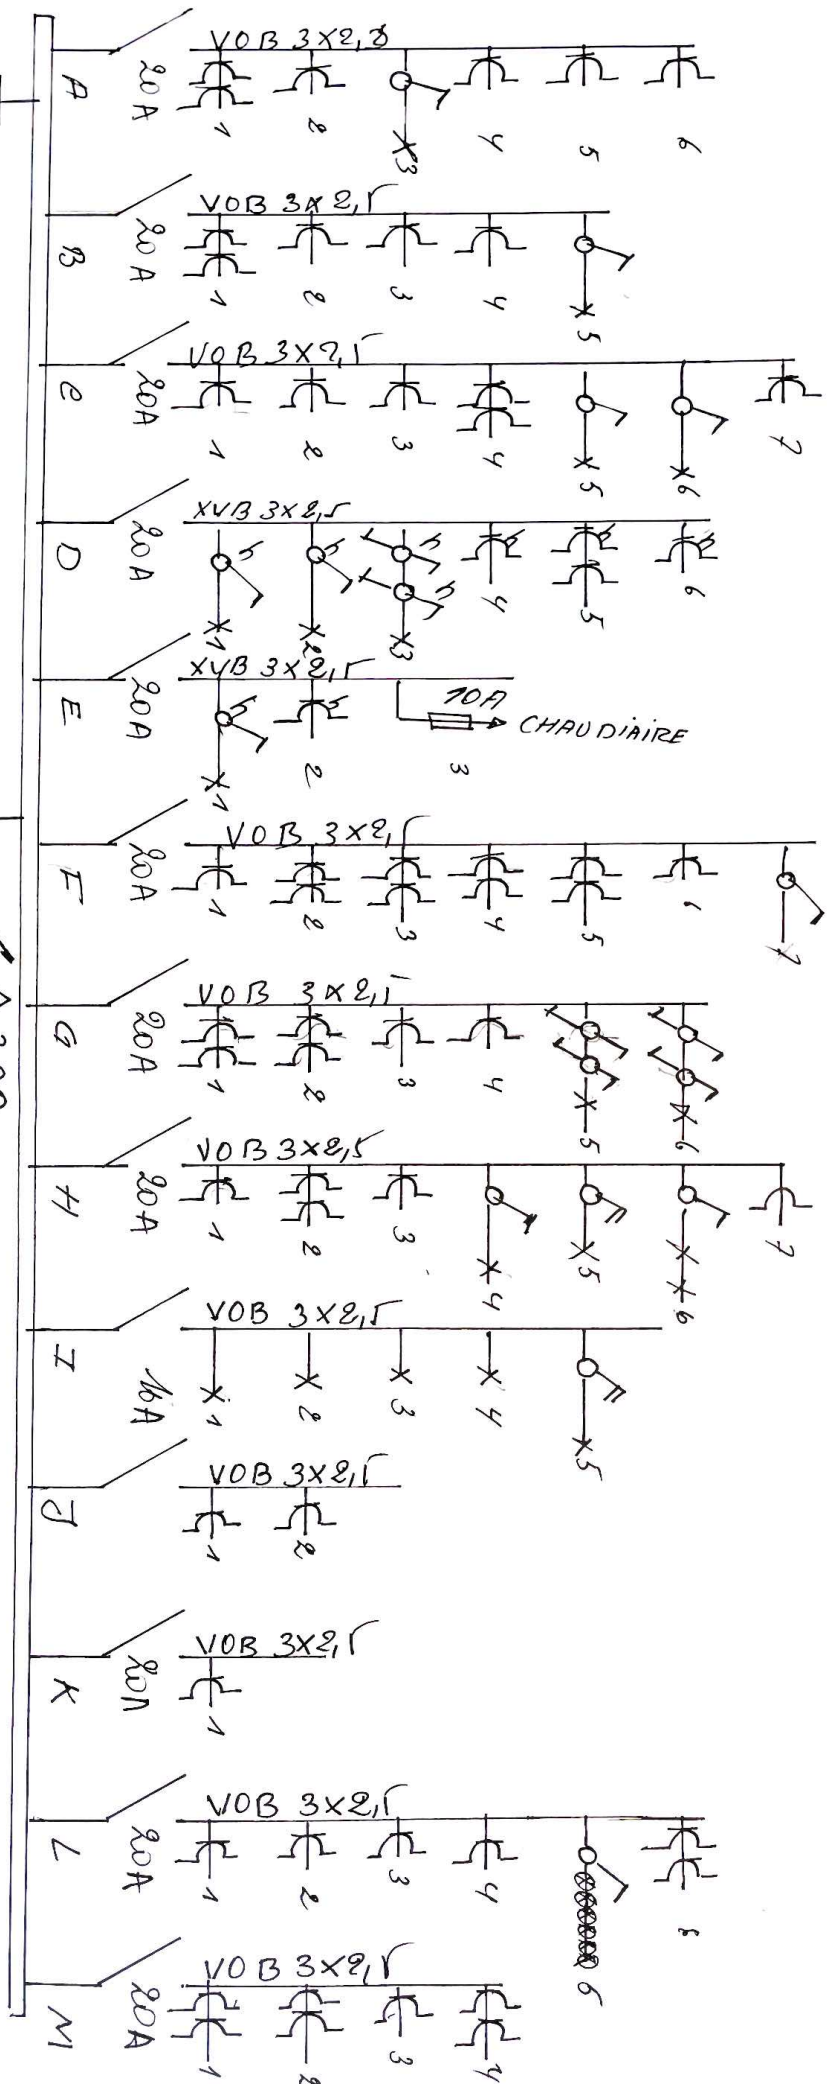 A
20A
VOB 3X2,5
1 2 X3 4 5 6
B
20A
VOB 3X2,5
1 2 3 4 X5
C
20A
VOB 3X2,5
1 2 3 4 X5 X6 7
D
20A
XVB 3X2,5
X1 X2 X3 4 5 6
E
20A
XVB 3X2,5
X1 2 10A CHAUDIAIRE
3
F
20A
VOB 3X2,5
1 2 3 4 5 6 7
G
20A
VOB 3X2,5
1 2 3 4 X5 X6
H
20A
VOB 3X2,5
1 2 3 X4 X5 XX6 7
I
16A
VOB 3X2,5
X1 X2 X3 X4 X5
J
VOB 3X2,5
1 2
K
20A
VOB 3X2,5
1
L
20A
VOB 3X2,5
1 2 3 4 6
M
20A
VOB 3X2,5
1 2 3 4